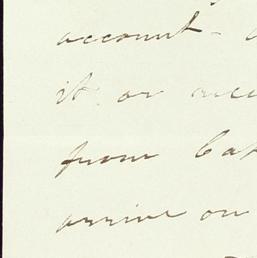 account -
it, or
from
arrive on